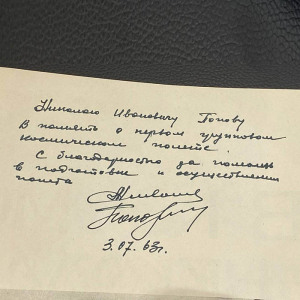 Николаю Ивановичу Попову
В память о первом групповом
космическом полете.
С благодарностью за помощь
в подготовке и осуществлении
полета
Попович
3.07.63г.